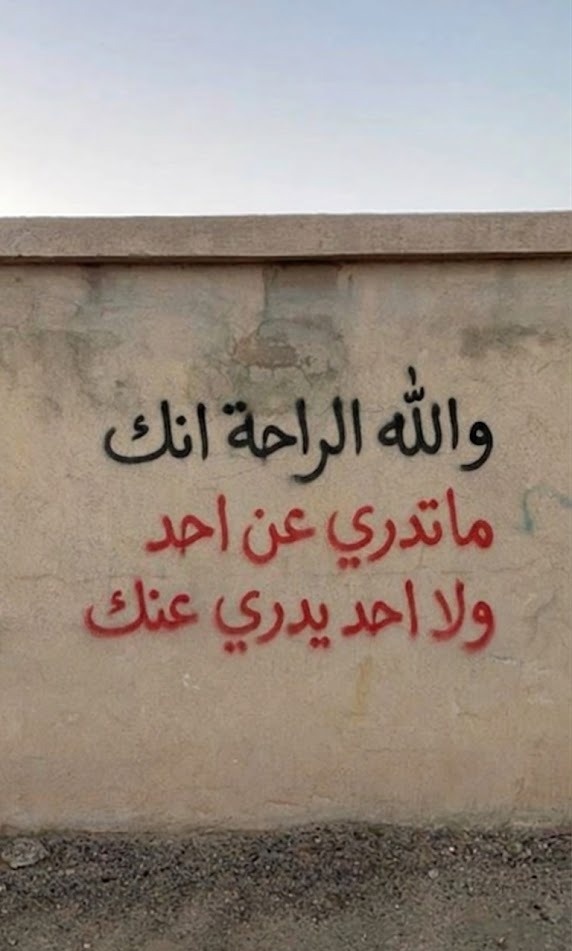 والله الراحة انك
ماتدري عن احد
ولا احد يدري عنك